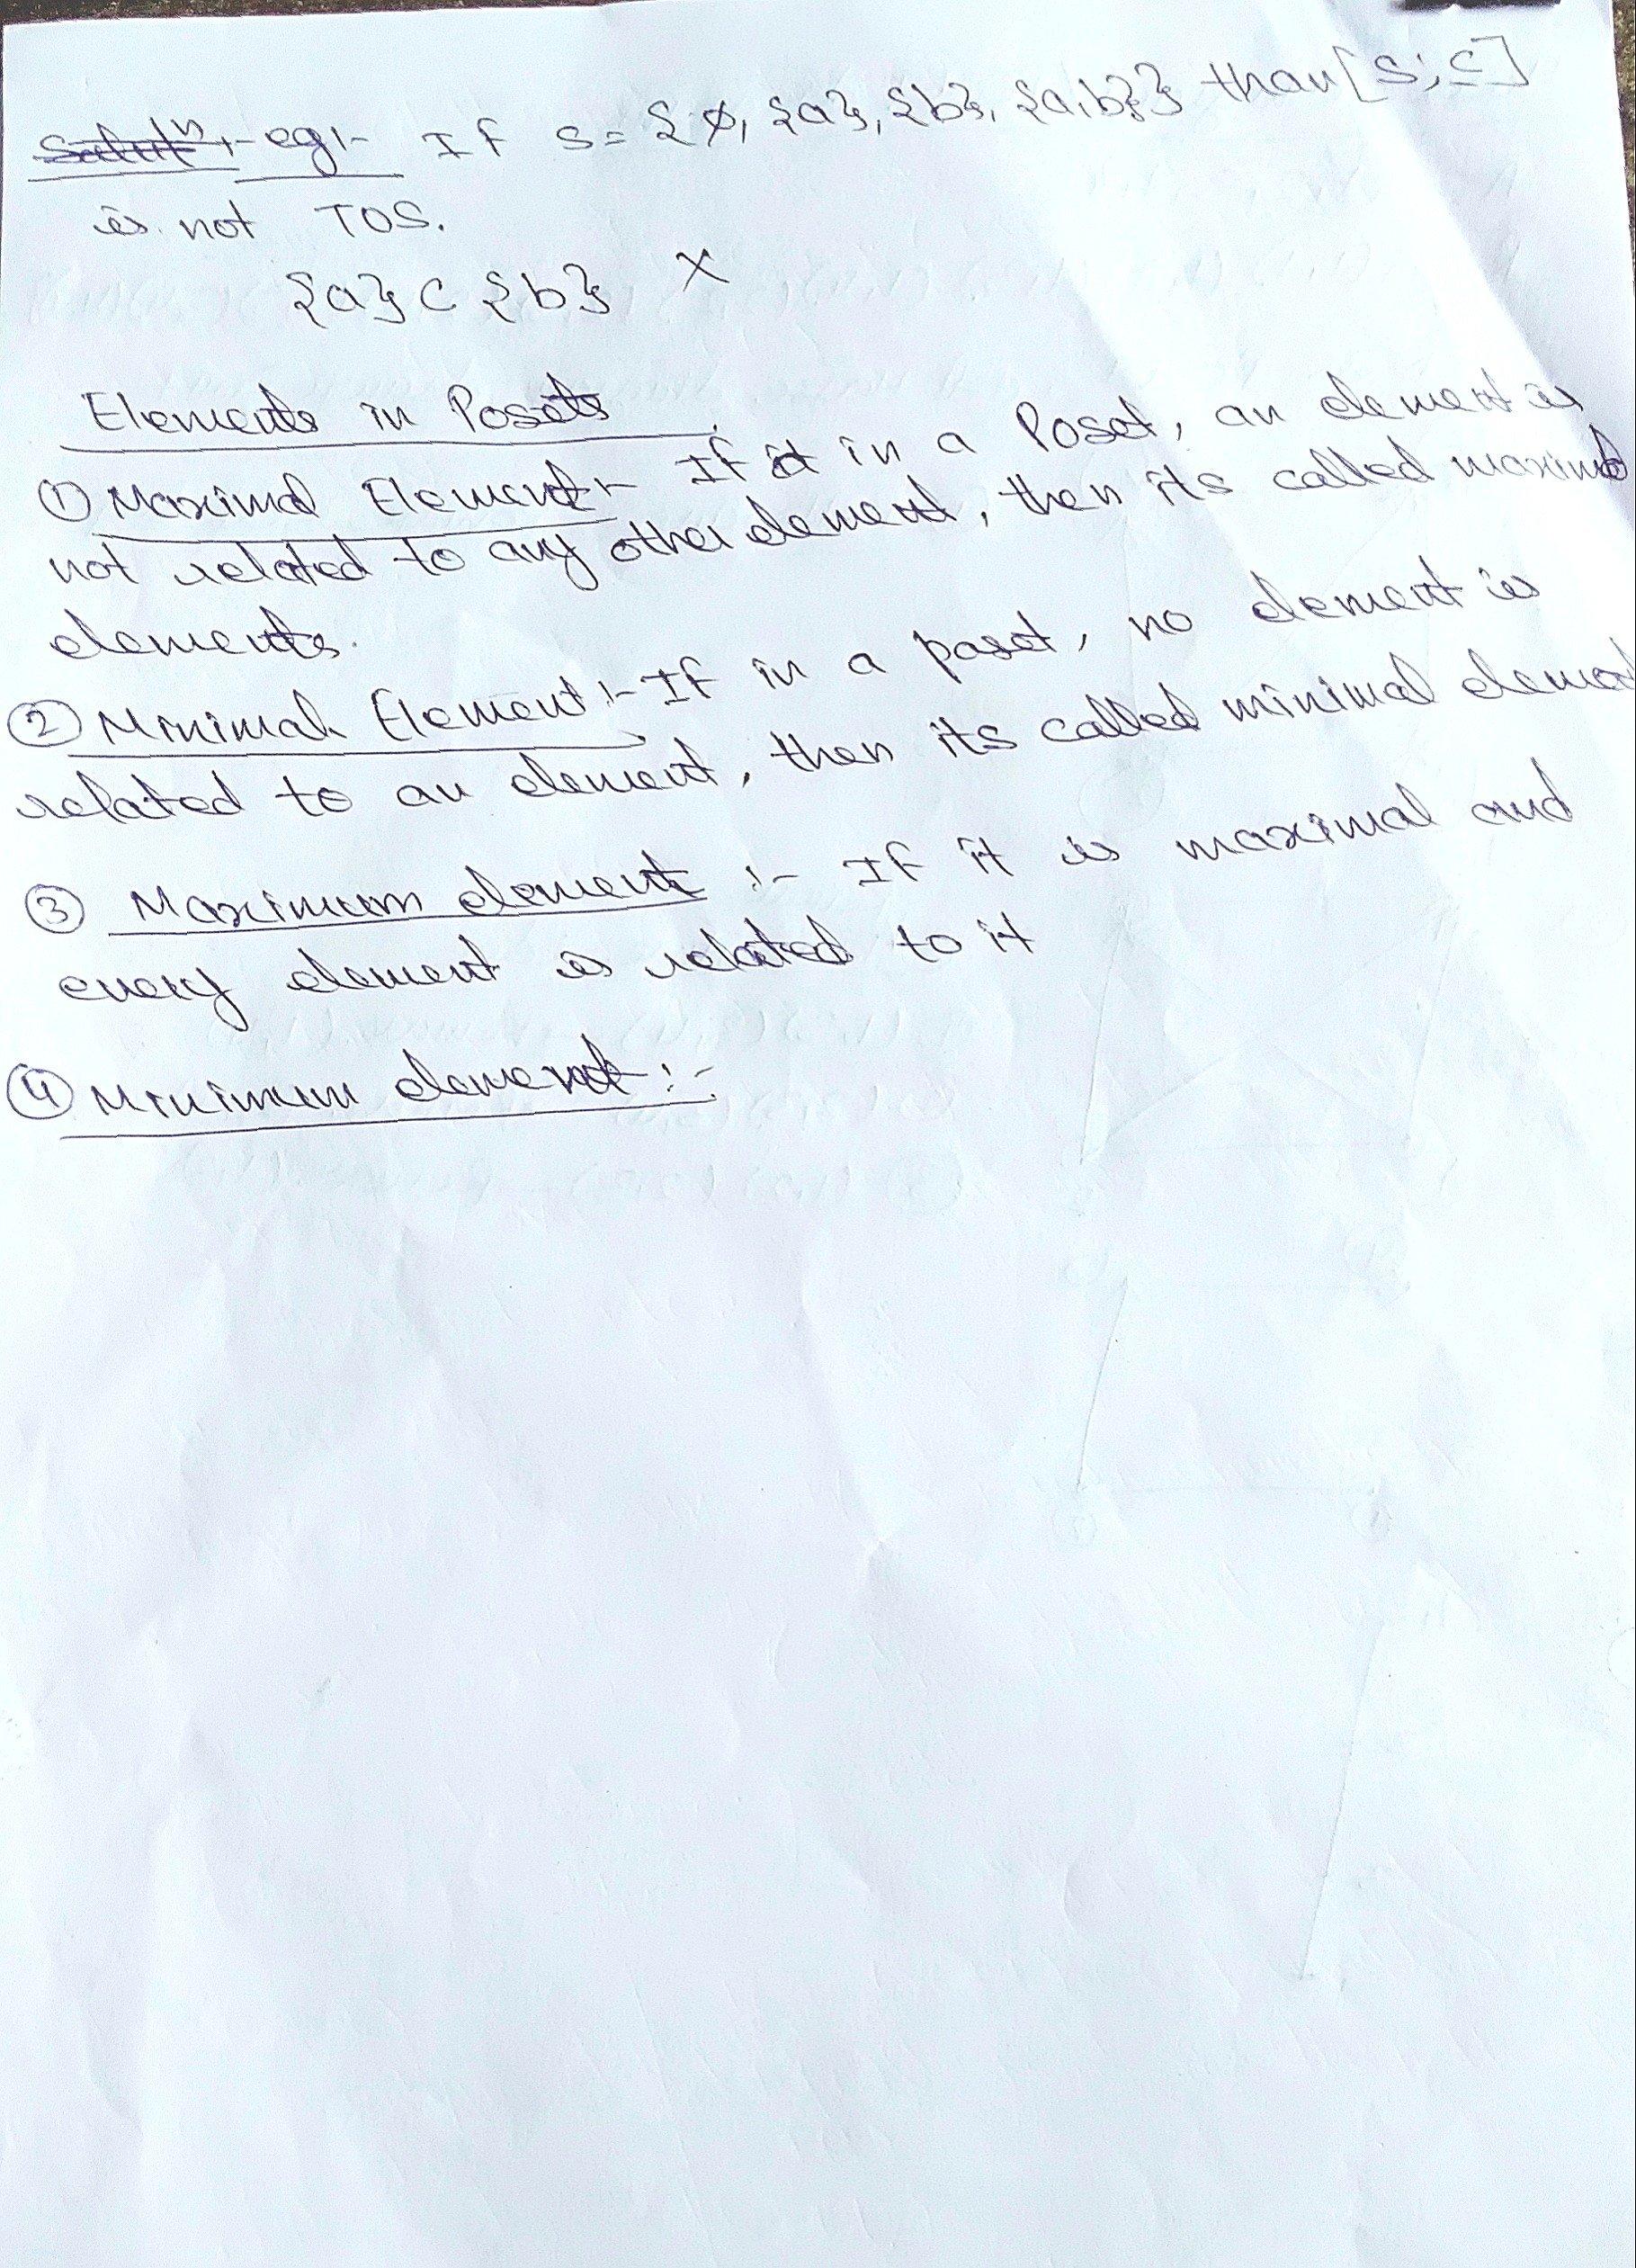 eg:- If S = {∅, {a}, {b}, {a,b}} than [S; ⊆]
is not TOS.
{a} ⊂ {b} ×
Elements in Posets
① Maximal Element :- If it in a Poset, an element is
not related to any other element, then its called maximal
elements.
② Minimal Element :- If in a poset, no element is
related to an element, then its called minimal element
③ Maximum element :- If it is maximal and
every element is related to it
④ Minimum element :-